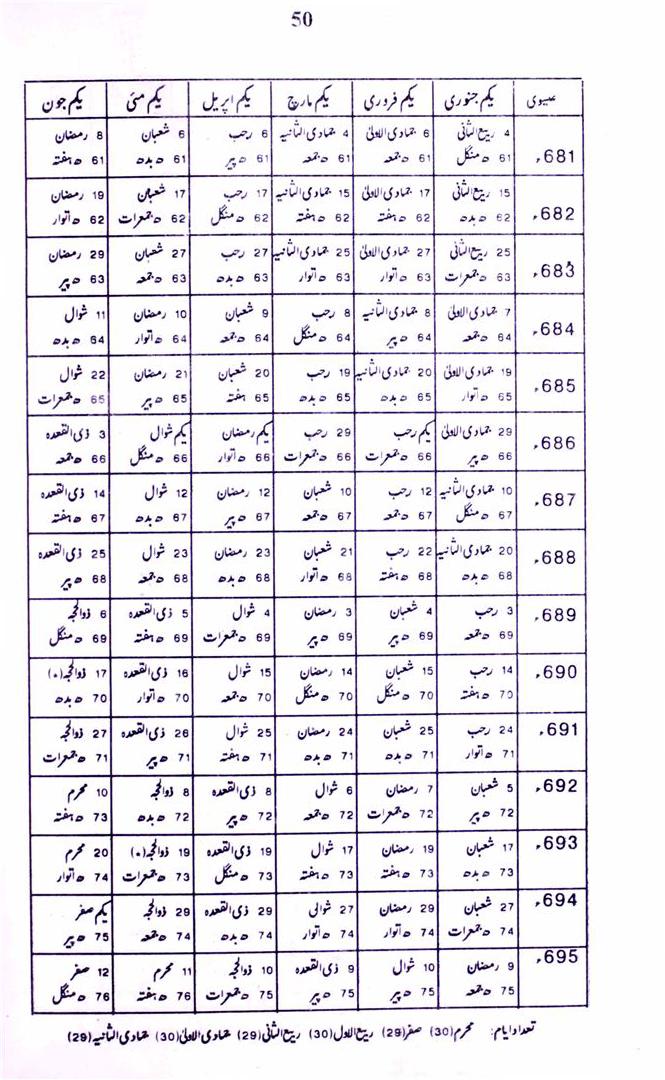 50
عیسوی یکم جنوری یکم فروری یکم مارچ یکم اپریل یکم مئی یکم جون
681ء 4 ربیع الثانی 6 جمادی الاولیٰ 4 جمادی الثانیہ 6 رجب 6 شعبان 8 رمضان
61ھ منگل 61ھ جمعہ 61ھ جمعہ 61ھ پیر 61ھ بدھ 61ھ ہفتہ
682ء 15 ربیع الثانی 17 جمادی الاولیٰ 15 جمادی الثانیہ 17 رجب 17 شعبان 19 رمضان
62ھ بدھ 62ھ ہفتہ 62ھ ہفتہ 62ھ منگل 62ھ جمعرات 62ھ اتوار
683ء 25 ربیع الثانی 27 جمادی الاولیٰ 25 جمادی الثانیہ 27 رجب 27 شعبان 29 رمضان
63ھ جمعرات 63ھ اتوار 63ھ اتوار 63ھ بدھ 63ھ جمعہ 63ھ پیر
684ء 7 جمادی الاولیٰ 8 جمادی الثانیہ 8 رجب 9 شعبان 10 رمضان 11 شوال
64ھ جمعہ 64ھ پیر 64ھ منگل 64ھ جمعہ 64ھ اتوار 64ھ بدھ
685ء 19 جمادی الاولیٰ 20 جمادی الثانیہ 19 رجب 20 شعبان 21 رمضان 22 شوال
65ھ اتوار 65ھ بدھ 65ھ بدھ 65 ہفتہ 65ھ پیر 65ھ جمعرات
686ء 29 جمادی الاولیٰ یکم رجب 29 رجب یکم رمضان یکم شوال 3 ذی القعدہ
66ھ پیر 66ھ جمعرات 66ھ جمعرات 66ھ اتوار 66ھ منگل 66ھ جمعہ
687ء 10 جمادی الثانیہ 12 رجب 10 شعبان 12 رمضان 12 شوال 14 ذی القعدہ
67ھ منگل 67ھ جمعہ 67ھ جمعہ 67ھ پیر 67ھ بدھ 67ھ ہفتہ
688ء 20 جمادی الثانیہ 22 رجب 21 شعبان 23 رمضان 23 شوال 25 ذی القعدہ
68ھ بدھ 68ھ ہفتہ 68ھ اتوار 68ھ بدھ 68ھ جمعہ 68ھ پیر
689ء 3 رجب 4 شعبان 3 رمضان 4 شوال 5 ذی القعدہ 6 ذوالحجہ
69ھ جمعہ 69ھ پیر 69ھ پیر 69ھ جمعرات 69ھ ہفتہ 69ھ منگل
690ء 14 رجب 15 شعبان 14 رمضان 15 شوال 16 ذی القعدہ 17 ذوالحجہ (*)
70ھ ہفتہ 70ھ منگل 70ھ منگل 70ھ جمعہ 70ھ اتوار 70ھ بدھ
691ء 24 رجب 25 شعبان 24 رمضان 25 شوال 26 ذی القعدہ 27 ذوالحجہ
71ھ اتوار 71ھ بدھ 71ھ بدھ 71ھ ہفتہ 71ھ پیر 71ھ جمعرات
692ء 5 شعبان 7 رمضان 6 شوال 8 ذی القعدہ 8 ذوالحجہ 10 محرم
72ھ پیر 72ھ جمعرات 72ھ جمعہ 72ھ پیر 72ھ بدھ 73ھ ہفتہ
693ء 17 شعبان 19 رمضان 17 شوال 19 ذی القعدہ 19 ذوالحجہ (*) 20 محرم
73ھ بدھ 73ھ ہفتہ 73ھ ہفتہ 73ھ منگل 73ھ جمعرات 74ھ اتوار
694ء 27 شعبان 29 رمضان 27 شوالی 29 ذی القعدہ 29 ذوالحجہ یکم صفر
74ھ جمعرات 74ھ اتوار 74ھ اتوار 74ھ بدھ 74ھ جمعہ 75ھ پیر
695ء 9 رمضان 10 شوال 9 ذی القعدہ 10 ذوالحجہ 11 محرم 12 صفر
75ھ جمعہ 75ھ پیر 75ھ پیر 75ھ جمعرات 76ھ ہفتہ 76ھ منگل
تعداد ایام: محرم (30) صفر (29) ربیع الاول (30) ربیع الثانی (29) جمادی الاولیٰ (30) جمادی الثانیہ (29)